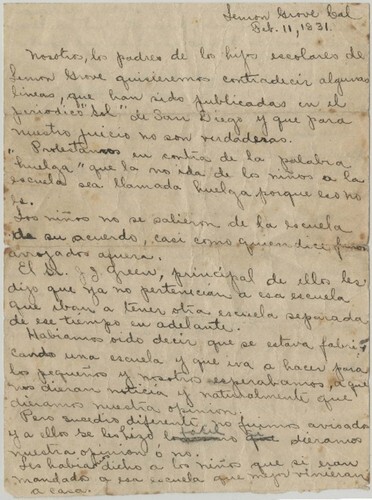 Lemon Grove Cal
Oct. 11, 1831.
Nosotros, los padres de los hijos escolares de
Lemon Grove quisieremos contradecir algunas
lineas, que han sido publicadas en el
periodico "Sol" de San Diego y que para
nuestro juicio no son verdaderas.
"Protestamos en contra de la palabra
"huelga" que la no ida de los niños a la
escuela sea llamada huelga porque eso no
es.
Los niños no se salieron de la escuela
de su acuerdo, casi como quien dice fueron
arrojados afuera.
El Sr. J. J. Green, principal de ellos les
dijo que ya no pertenician a esa escuela
que iban a tener otra escuela separada
de ese tiempo en adelante.
Habiamos oido decir que se estava fabri-
cando una escuela y que iva a hacer para
los pequeños y nosotros esperabamos a que
nos dieran noticia y naturalmente que
dieramos nuestra opinion.
Pero sucedio diferente no fuimos avisados
y a ellos se les hizo facil que dieramos
nuestra opinión o no.
Les habiamos dicho a los niños que si eran
mandados a esa escuela que mejor vinieran
a casa.